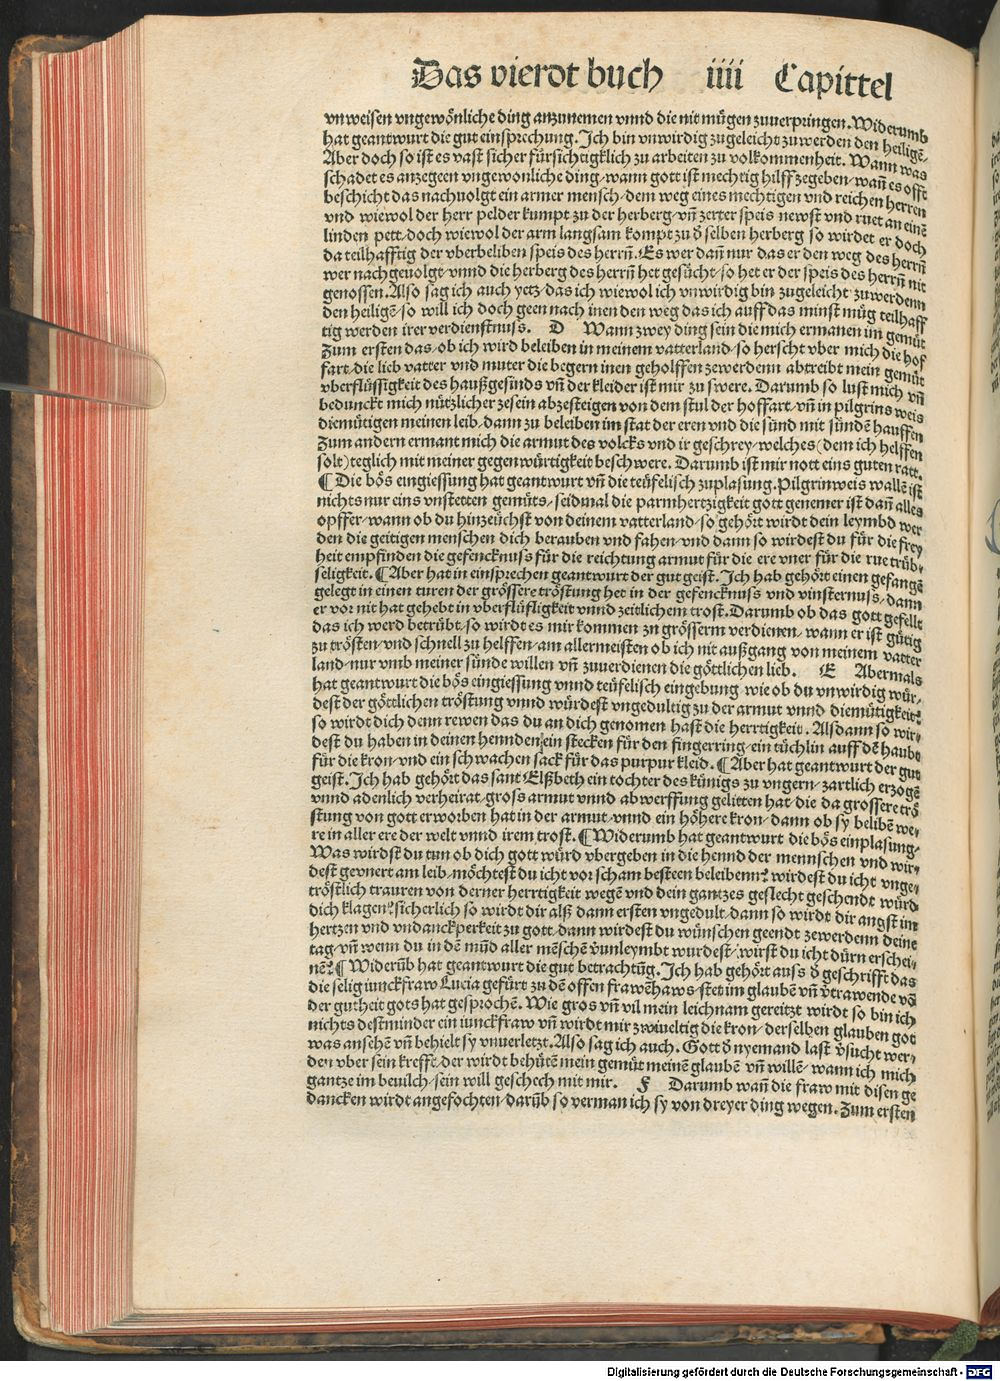 Das vierdt buch iiii Capittel
vnweisen vngewönliche ding anzunemen vnnd die nit mügen zuuerpringen. Widerumb
hat geantwurt die gut einsprechung. Ich bin vnwirdig zugeleicht zu werden den heiligē.
Aber doch so ist es vast sicher fürsichtigklich zu arbeiten zu volkommenheit. Wann was
schadet es anzegeen vngewonliche ding/ wann gott ist mechtig hilff zegeben/ wañ es offt
beschicht das nachuolgt ein armer mensch/ dem weg eines mechtigen vnd reichen herren
vnd wiewol der herr pelder kumpt zu der herberg/ vñ zerter speis newst vnd ruet an einē
linden pett/ doch wiewol der arm langsam kompt zu d̄ selben herberg so wirdet er doch
da teilhafftig der vberbeliben speis des herrñ. Es wer dañ nur das er den weg des herrñ
wer nachgeuolgt/ vnnd die herberg des herrñ het gesücht/ so het er der speis des herrñ nit
genossen. Also sag ich auch yetz/ das ich wiewol ich vnwirdig bin zugeleicht zuwerdenn
den heiligē/ so will ich doch geen nach inen den weg das ich auff das minst müg teilhaff
tig werden irer verdienstnuss. D Wann zwey ding sein die mich ermanen im gemüt
Zum ersten das/ ob ich wird beleiben in meinem vatterland/ so herscht vber mich die hof
fart/ die lieb vatter vnd muter die begern inen geholffen zewerdenn abtreibt mein gemüt
vberflüssigkeit des haußgesinds vñ der kleider ist mir zu swere. Darumb so lust mich vñ
bedunckt mich nützlicher zesein abzesteigen von dem stul der hoffart/ vñ in pilgrins weis
diemütigen meinen leib/ dann zu beleiben im stat der eren vnd die sünd mit sündē hauffen
Zum andern ermant mich die armut des volcks vnd ir geschrey/ welches (dem ich helffen
solt) teglich mit meiner gegenwürtigkeit beschwere. Darumb ist mir nott eins guten ratt.
¶ Die bös eingiessung hat geantwurt vñ die teüfelisch zuplasung. Pilgrinweis wallē ist
nichts nur eins vnstetten gemüts/ seidmal die parmhertzigkeit gott genemer ist dañ alles
opffer/ wann ob du hinzeüchst von deinem vatterland/ so gehört wirdt dein leymbd wer
den die geitigen menschen dich berauben vnd fahen/ vnd dann so wirdest du für die frey
heit empfinden die gefencknuss für die reichtung armut für die ere vner für die rue trüb/
seligkeit. ¶ Aber hat in einsprechen geantwurt der gut geist. Ich hab gehört einen gefangē
gelegt in einen turen der grössere tröstung het in der gefencknuss vnd vinsternuss/ dann
er vor nit hat gehebt in vberflüßigkeit vnnd zeitlichem trost. Darumb ob das gott gefellt
das ich werd betrübt/ so wirdt es mir kommen zu grösserm verdienen/ wann er ist gütig
zu trösten/ vnd schnell zu helffen/ am allermeisten ob ich nit außgang von meinem vatter
land/ nur vmb meiner sünde willen vñ zuuerdienen die göttlichen lieb. E Abermals
hat geantwurt die bös eingiessung vnnd teüfelisch eingebung/ wie ob du vnwirdig wür/
dest der göttlichen tröstung vnnd würdest vngedultig zu der armut vnnd diemütigkeit?
so wirdt dich denn rewen das du an dich genomen hast die herrtigkeit. Alsdann so wir/
dest du haben in deinen hennden ein stecken für den fingerring/ ein tüchlin auff dē haubt
für die kron/ vnd ein schwachen sack für das purpur kleid. ¶ Aber hat geantwurt der gut
geist. Ich hab gehört das sant Elßbeth ein tochter des künigs zu vngern/ zartlich erzogē
vnnd adenlich verheirat/ gross armut vnnd abwerffung gelitten hat/ die da grossere trö
stung von gott erworben hat in der armut/ vnnd ein höhere kron/ dann ob sy belibē we/
re in aller ere der welt vnnd irem trost. ¶ Widerumb hat geantwurt die bös einplasung/
Was wirdst du tun ob dich gott würd vbergeben in die hennd der mennschen vnd wir/
dest geunert am leib/ möchtest du icht vor scham besteen beleibenn? wirdest du icht vnge/
tröstlich trauren von derner herrtigkeit wegē vnd dein gantzes geslecht geschendt würd
dich klagen? sicherlich so wirdt dir alß dann ersten vngedult/ dann so wirdt dir angst im
hertzen vnd vndanckperkeit zu gott/ dann wirdest du wünschen geendt zewerdenn deine
tag/ vñ wenn du in dē mūd aller mēschē v̄unleymbt wurdest/ wirst du icht dürn erschei/
nē? ¶ Widerūb hat geantwurt die gut betrachtūg. Ich hab gehört auss d̄ geschrifft das
die selig iunckfraw Lucia gefürt zu dē offen frawēhaws/ stet im glaubē vñ v̄trawende vō
der gutheit gots hat gesprochē. Wie gros vñ vil mein leichnam gereitzt wirdt so bin ich
nichts destminder ein iunckfraw vñ wirdt mir zwiueltig die kron/ derselben glauben got
was ansehē vñ behielt sy vnuerletzt. Also sag ich auch. Gott d̄ nyemand last v̄sucht wer/
den vber sein krefft/ der wirdt behütē mein gemüt meinē glaubē vñ willē/ wann ich mich
gantze im beuilch/ sein will geschech mit mir. F Darumb wañ die fraw mit disen ge
dancken wirdt angefochten/ darūb so verman ich sy von dreyer ding wegen. Zum ersten
Digitalisierung gefördert durch die Deutsche Forschungsgemeinschaft - DFG